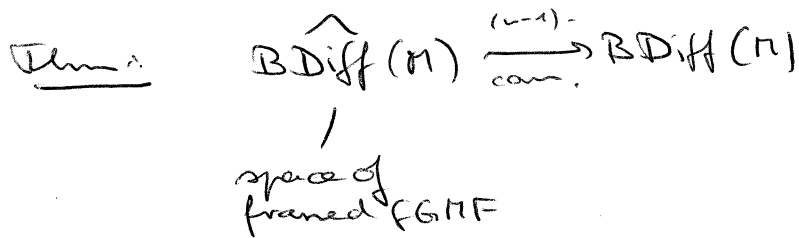 Thm: B\widehat{Diff}(M) \xrightarrow[conn.]{(n-1)-} BDiff(M)
space of
framed fGMF